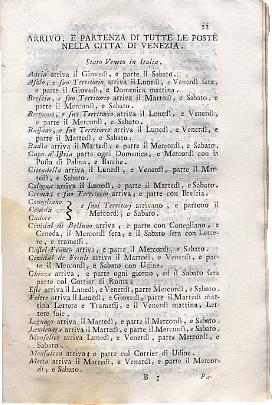 22
ARRIVO, E PARTENZA DI TUTTE LE POSTE
NELLA CITTA' DI VENEZIA.
Stato Veneto in Italia.
Adria arriva il Giovedì, e parte il Sabato.
Asolo, e suo Territorio arriva il Lunedì, e Venerdì sera,
e parte il Giovedì, e Domenica mattina.
Brescia, e suo Territorio arriva il Martedì, e Sabato, e
parte il Mercordì, e Sabato.
Bergamo, e suo Territorio arriva il Lunedì, e Venerdì,
e parte il Mercordì, e Sabato.
Bassano, e suo Territorio arriva il Lunedì, e Venerdì,
e parte il Martedì, e Sabato.
Badia arriva il Martedì, e parte il Mercordì, e Sabato.
Capo d'Istria parte ogni Domenica, e Mercordì con la
Posta di Palma, e Barche.
Cittadella arriva il Lunedì, e Venerdì, parte il Mar-
tedì, e Sabato.
Cologna arriva il Lunedì, e parte il Martedì, e Sabato.
Crema, e suo Territorio arriva, e parte con Brescia.
Conegliano
Ceneda
Cadore
e suoi Territorj arrivano, e partono il
Mercordì, e Sabato.
Cividal di Belluno arriva, e parte con Conegliano, e
Ceneda, il Mercordì sera, e il Sabato sera con Lette-
re, e tramessi.
Castel-Franco arriva, e parte il Mercordì, e Sabato.
Cividal de Friuli arriva il Martedì, e Venerdì, e par-
te il Mercordì, e Sabato con Udine.
Chioza arriva, e parte ogni giorno, ed il Sabato sera
parte col Corrier di Roma.
Este arriva il Lunedì, e Venerdì, parte Mercordì, e Sabato.
Feltre arriva il Lunedì, e Giovedì, parte il Martedì mat-
tina Lettere e Tramessi, e il Venerdì mattina, Let-
tere sole.
Legnago arriva il Martedì, e parte il Martedì, e Sabato.
Lendenara arriva il Martedì, e parte il Mercordì, e Sabato.
Monselice arriva Lunedì, e Venerdì, parte Mercordì, e
Sabato.
Monfalcon arriva, e parte col Corrier di Udine.
Motta arriva il Martedì, e Venerdì, parte il Mercor-
dì, e Sabato.
B 3
Pa-